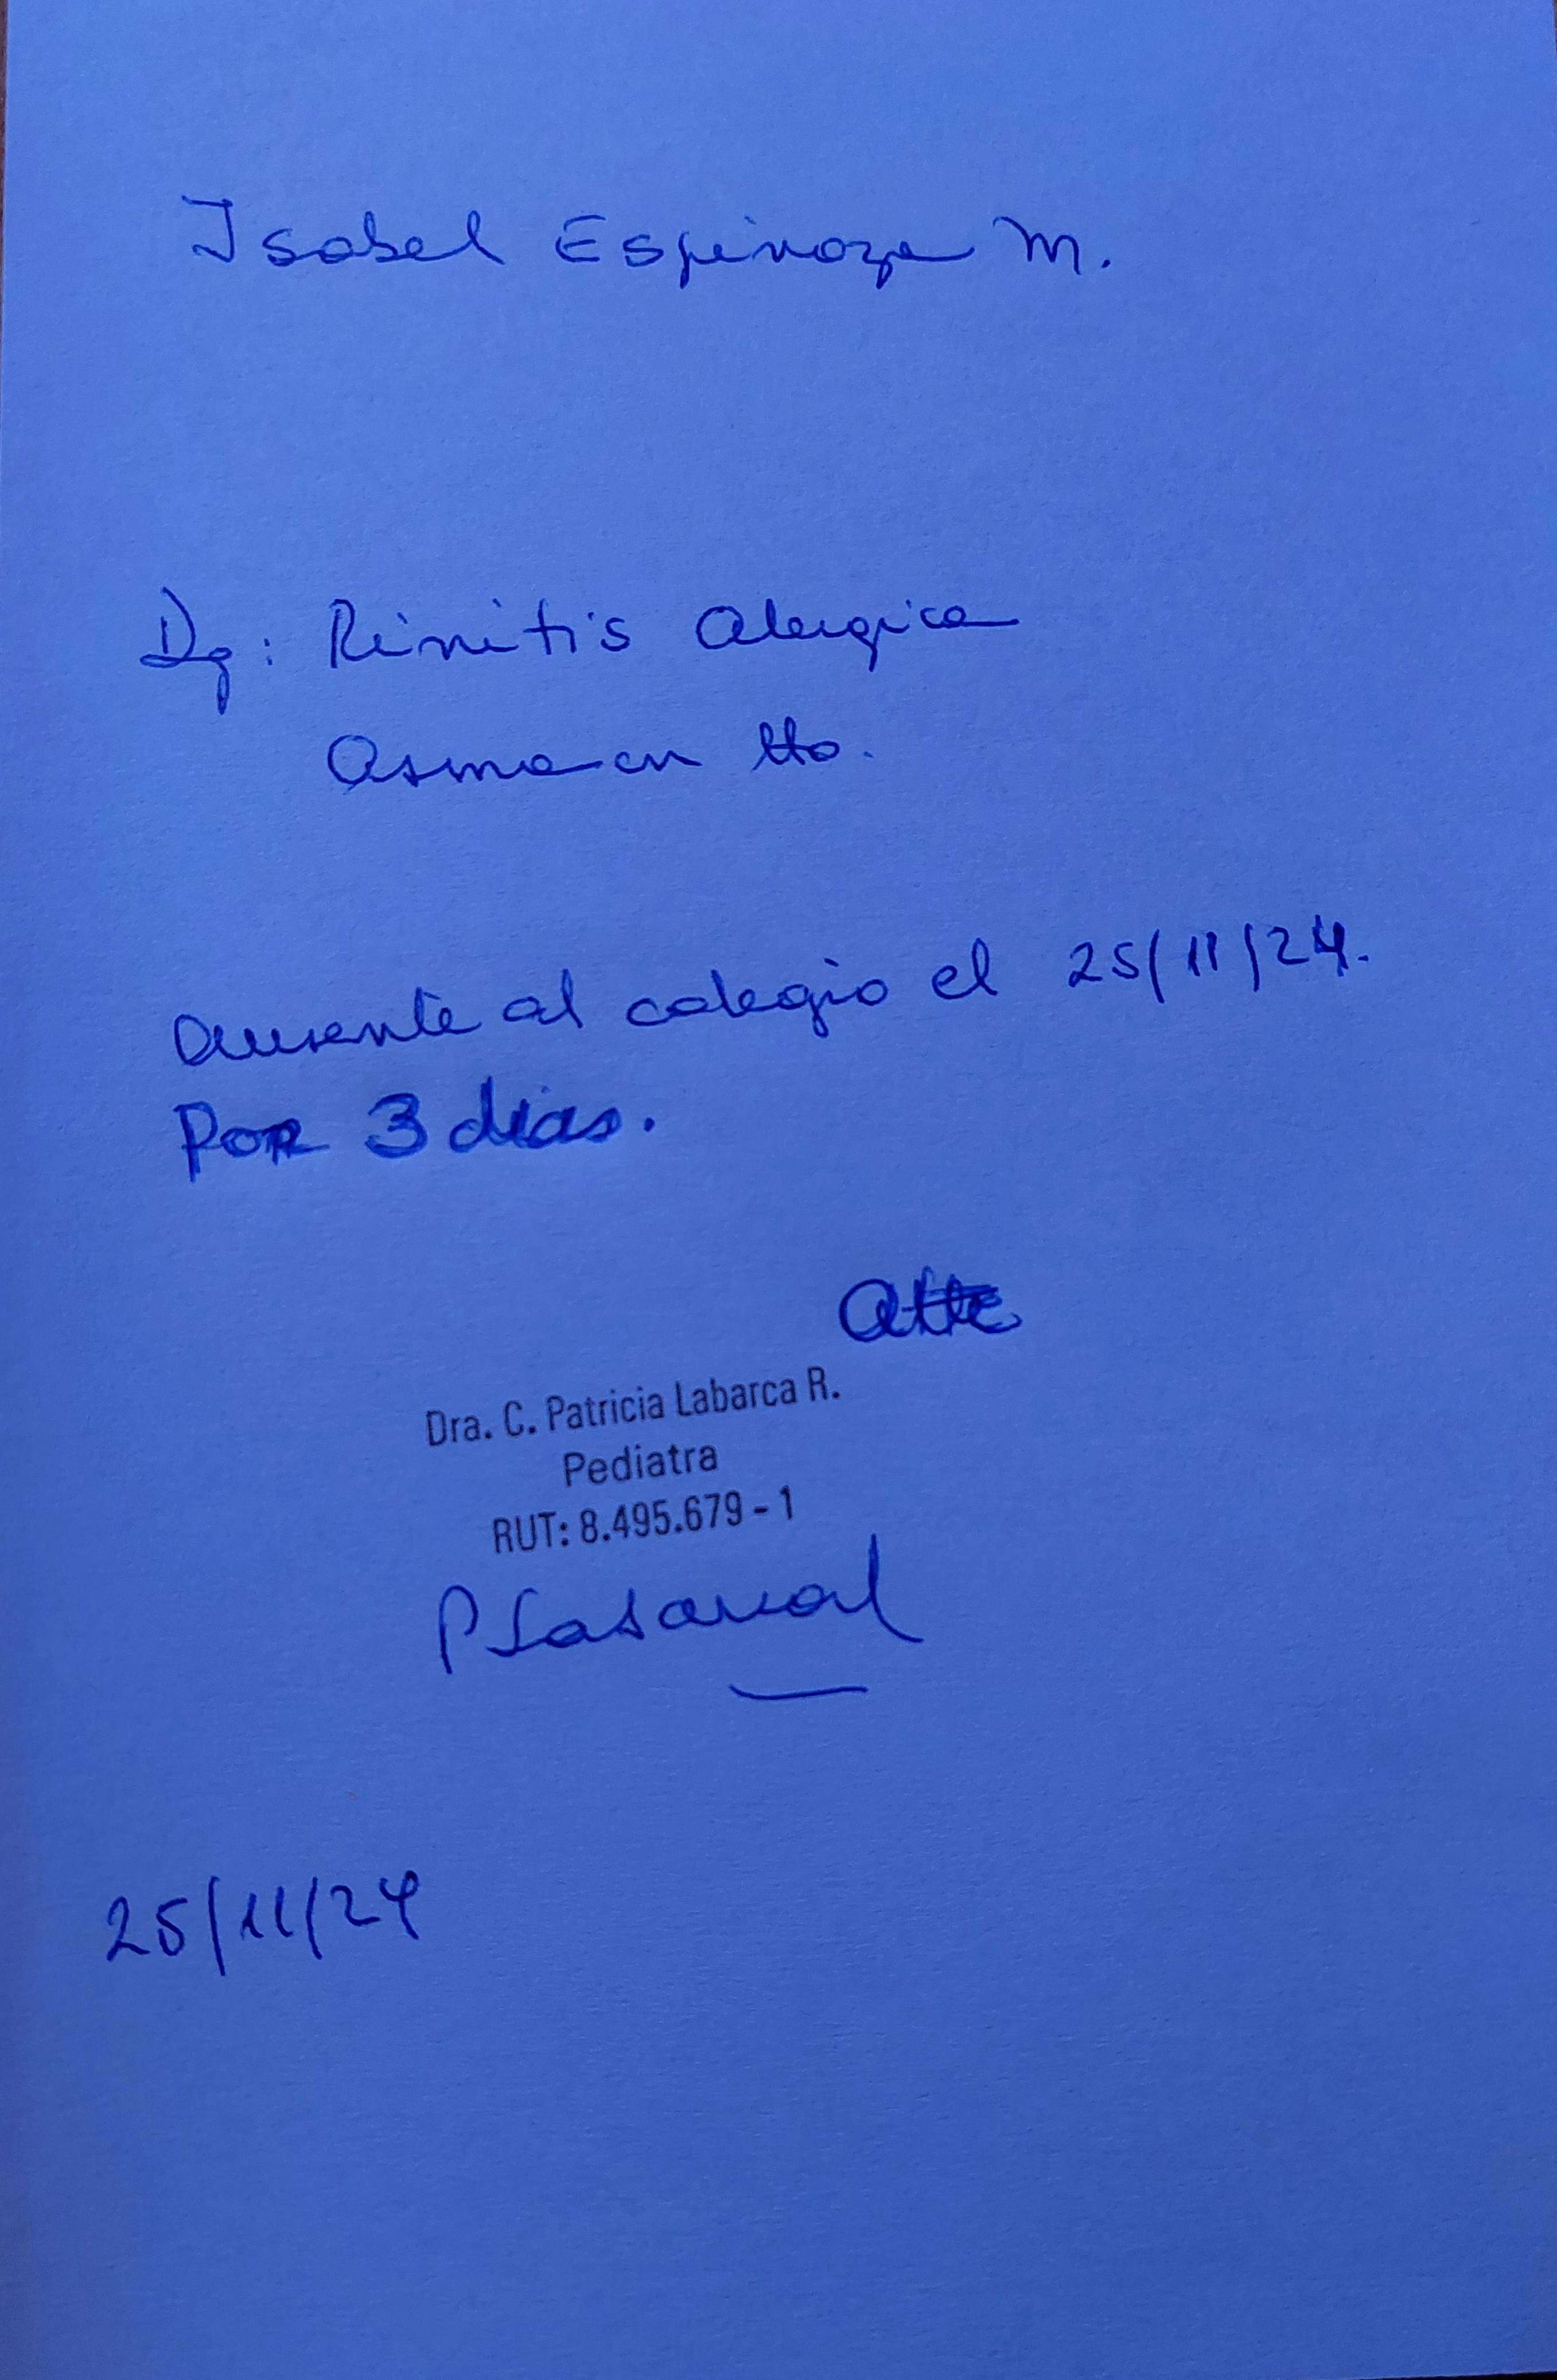 Isabel Espinoza M.
Dg: Rinitis alergica
Asma en tto.
Ausente al colegio el 25/11/24.
Por 3 dias.
Atte
Dra. C. Patricia Labarca R.
Pediatra
RUT: 8.495.679-1
25/11/24